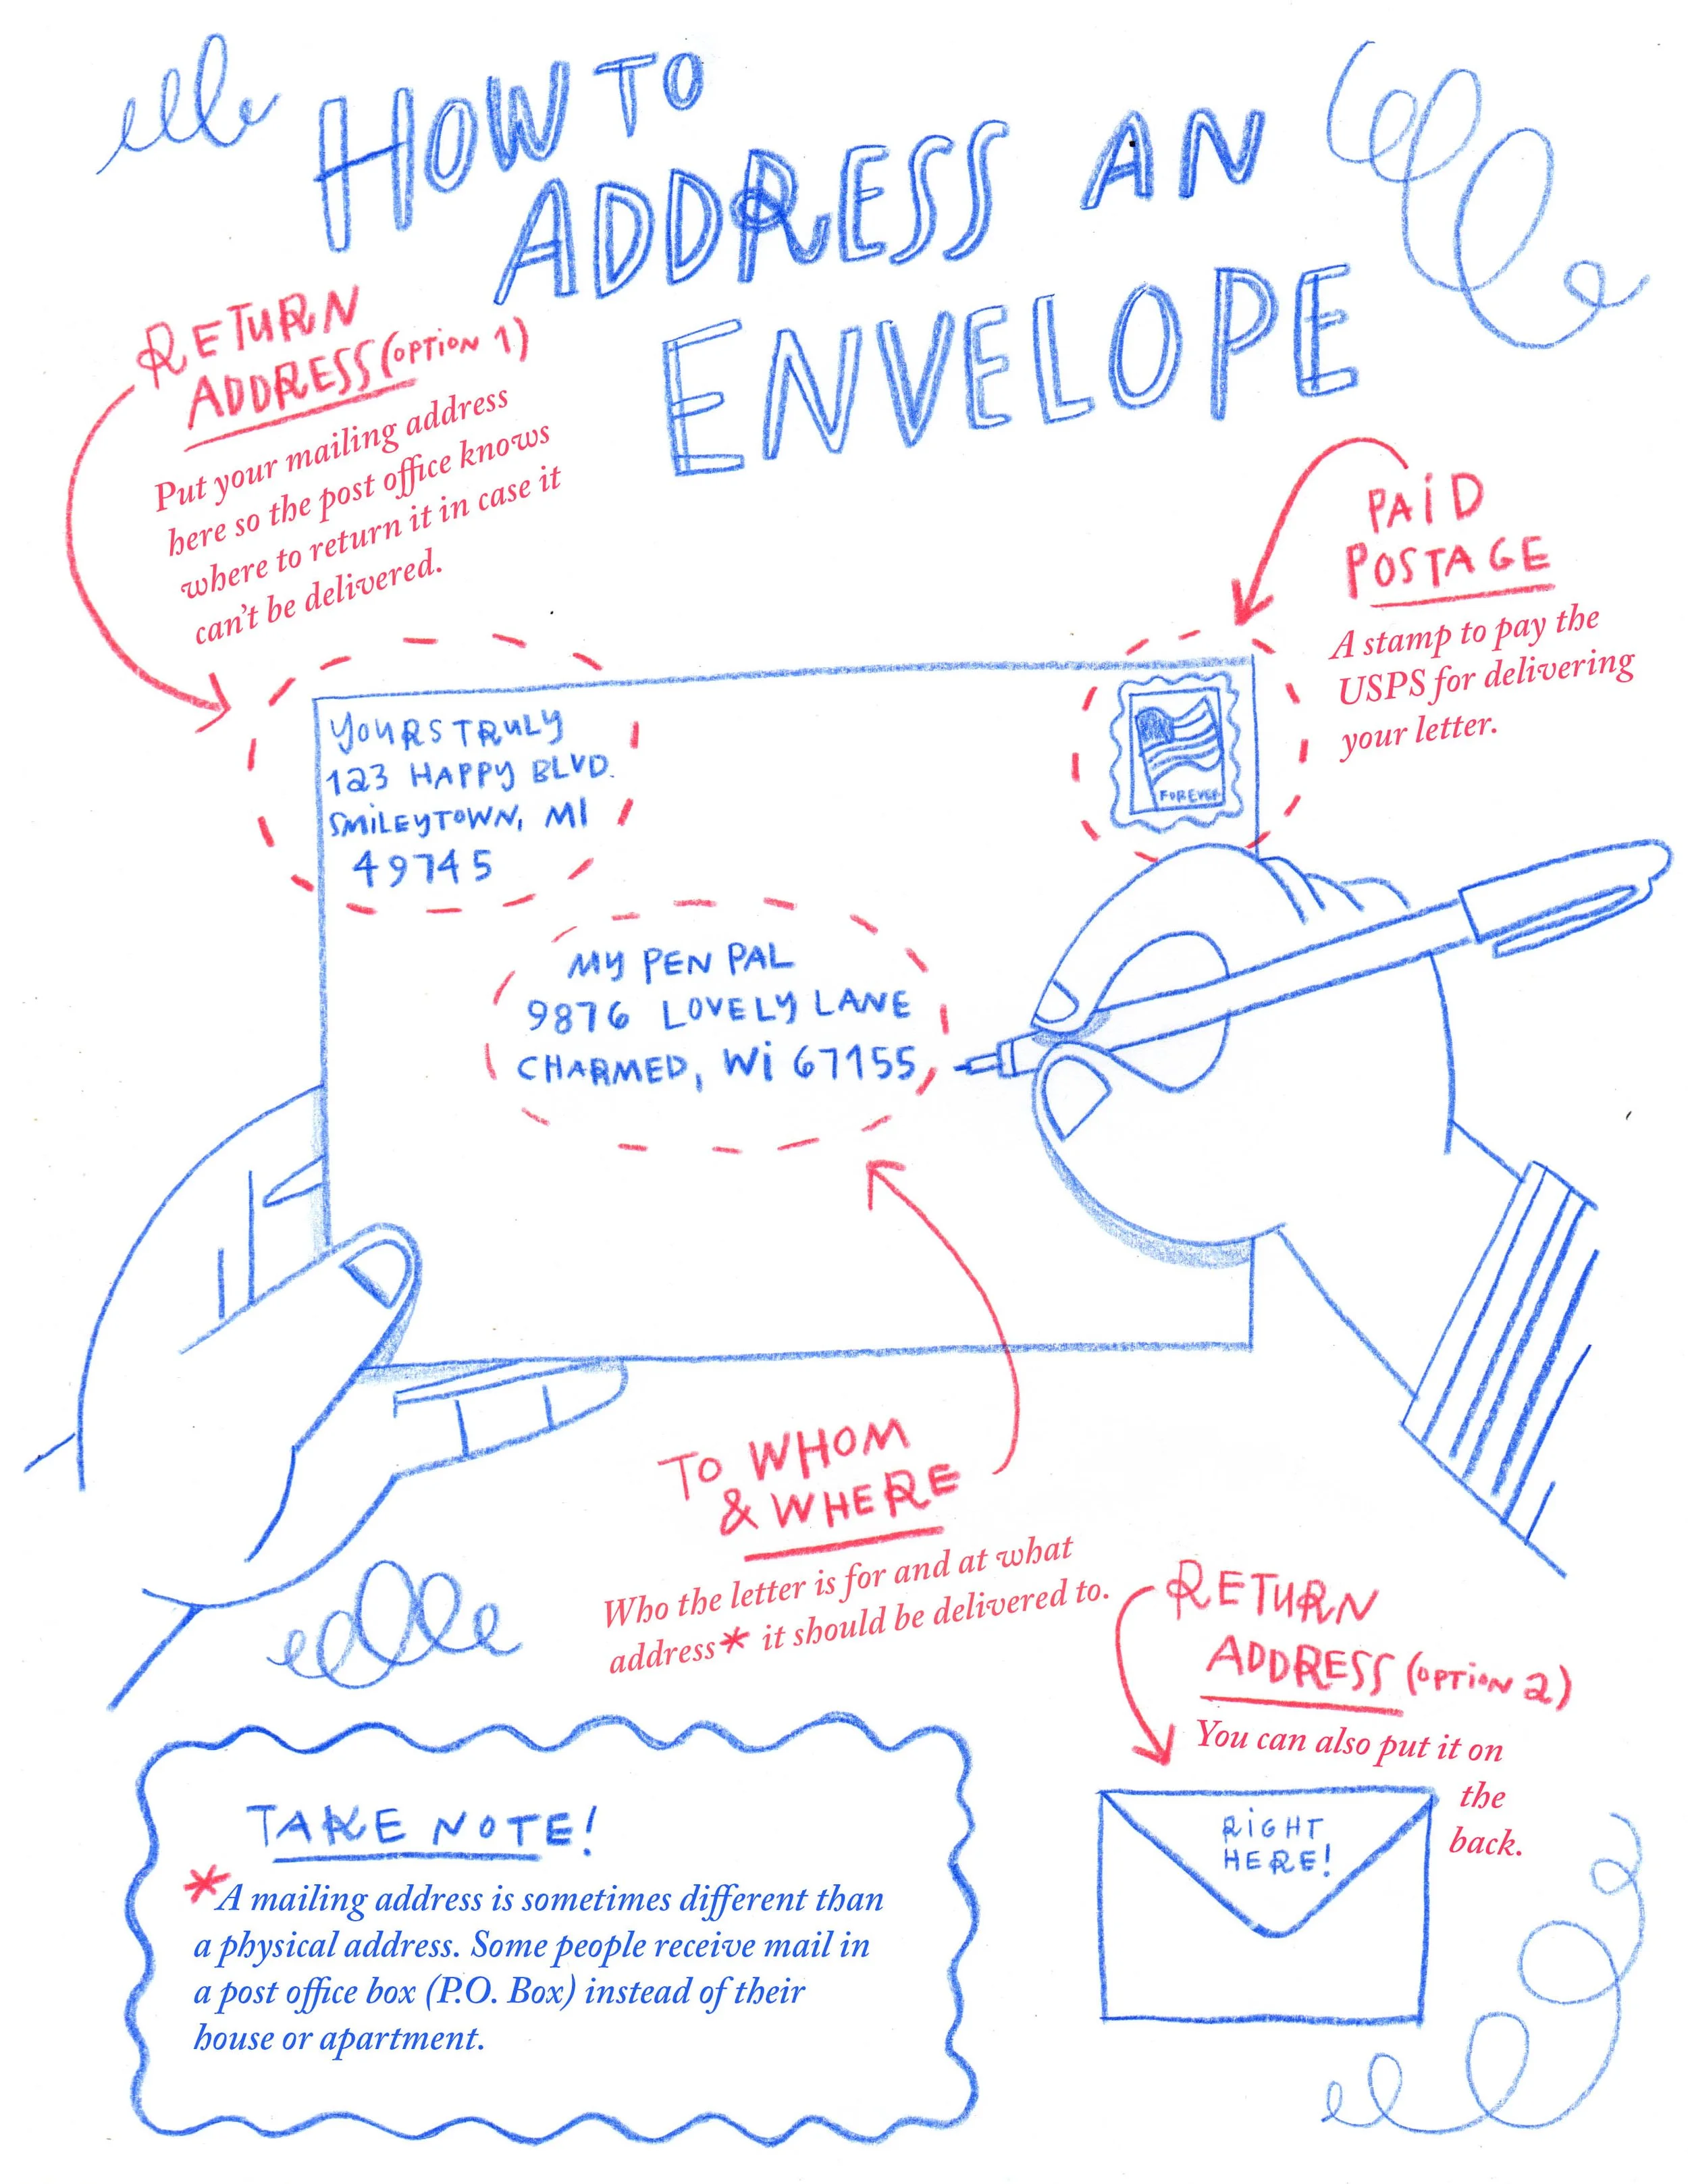 HOW TO
ADDRESS AN
ENVELOPE
RETURN
ADDRESS (OPTION 1)
Put your mailing address
here so the post office knows
where to return it in case it
can't be delivered.
PAiD
POSTAGE
A stamp to pay the
USPS for delivering
your letter.
YOURS TRULY
123 HAPPY BLVD.
SMiLEYTOWN, MI
49745
FOREVER
MY PEN PAL
9876 LOVELY LANE
CHARMED, Wi 67155
TO WHOM
& WHERE
Who the letter is for and at what
address* it should be delivered to.
RETURN
ADDRESS (OPTiON 2)
You can also put it on
the
back.
RiGHT
HERE!
TAKE NOTE!
*A mailing address is sometimes different than
a physical address. Some people receive mail in
a post office box (P.O. Box) instead of their
house or apartment.